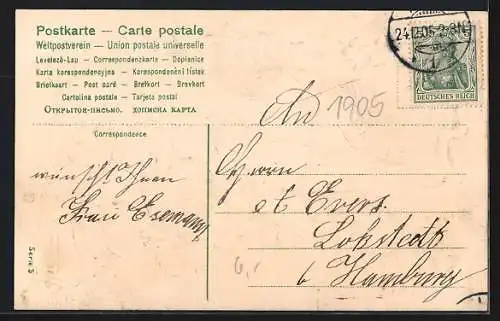 Postkarte — Carte postale
Weltpostverein — Union postale universelle
Levelező-Lap — Correspondenzkarte — Dopisnice
Karta korespondencyjna — Korespondenční lístek
Briefkaart — Post card — Brefkort — Brevkort
Cartolina postale — Tarjeta postal
Открытое-письмо. дописна карта.
Correspondence
24.12.05. 2-3N
DEUTSCHES REICH
1905
An
Herrn
Evers
Lokstedt
b Hamburg
wünscht Ihnen
Frau Esemann
6,-
Serie 5